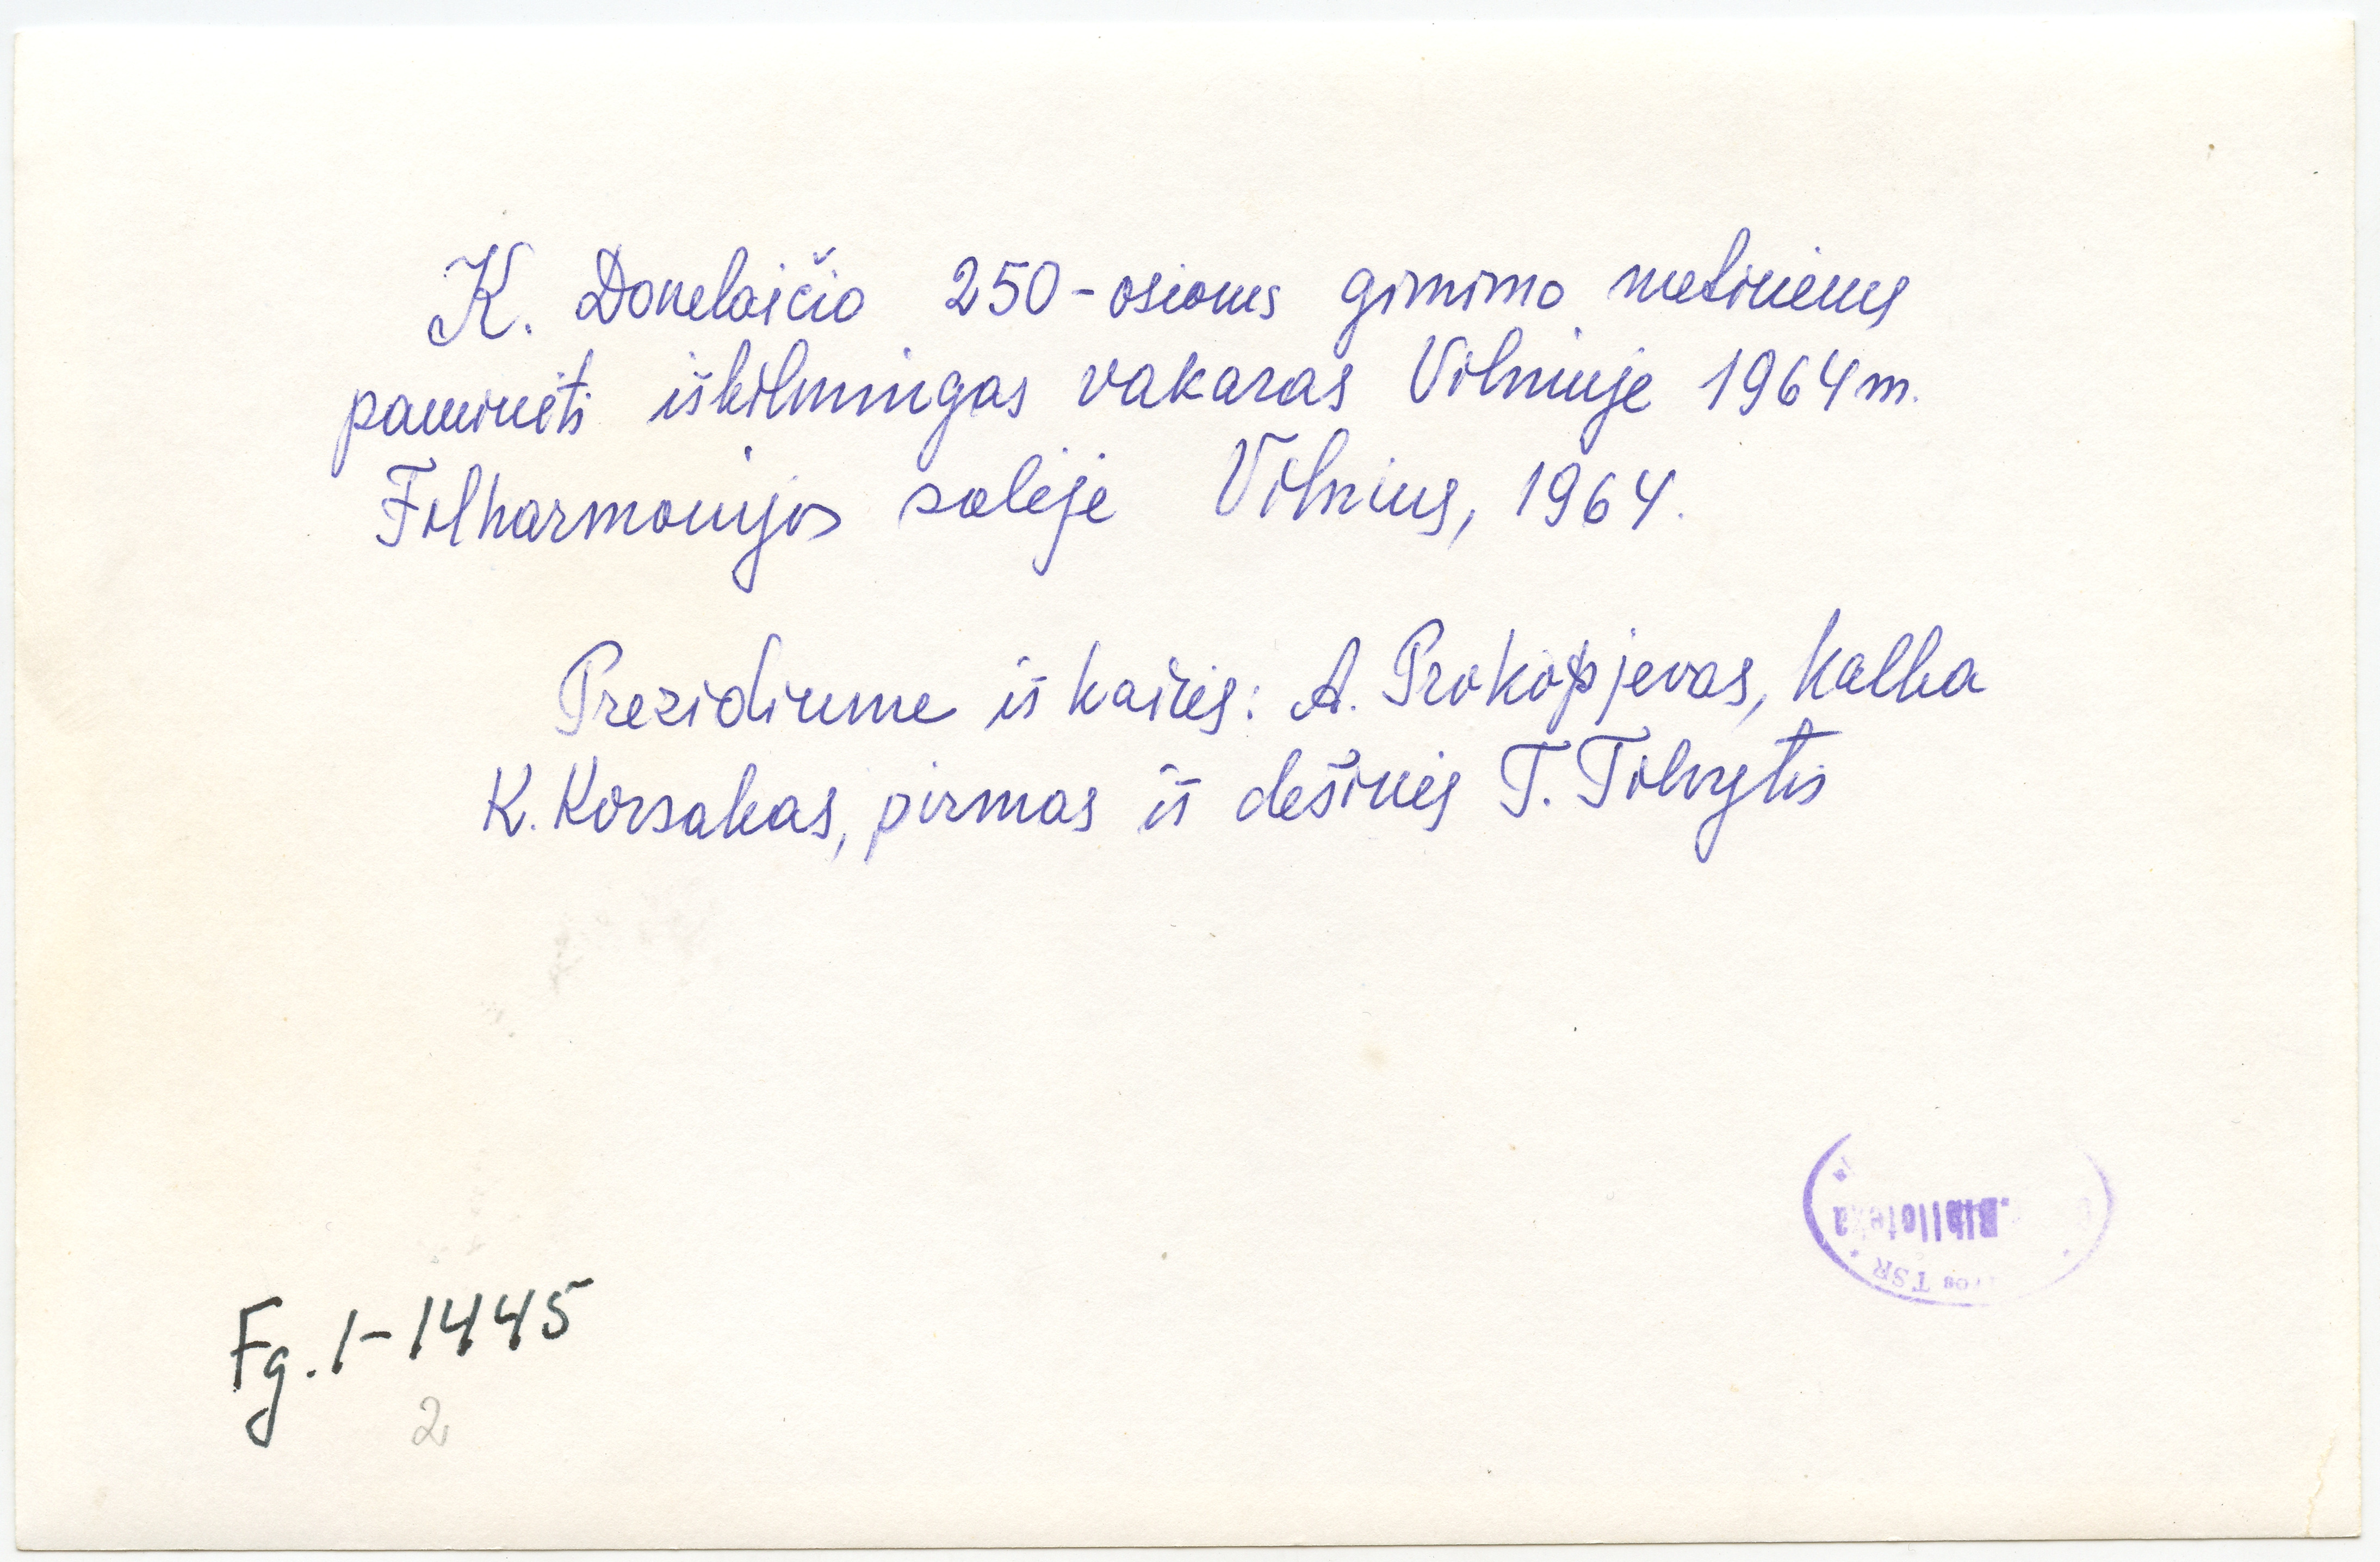 K. Donelaičio 250-osioms gimimo metinėms
paminėti iškilmingas vakaras Vilniuje 1964 m.
Filharmonijos salėje Vilnius, 1964.
Prezidiume iš kairės: A. Prokopjevas, kalba
K. Korsakas, pirmas iš dešinės T. Tilvytis
Biblioteka
TSR
Fg. 1-1445
2